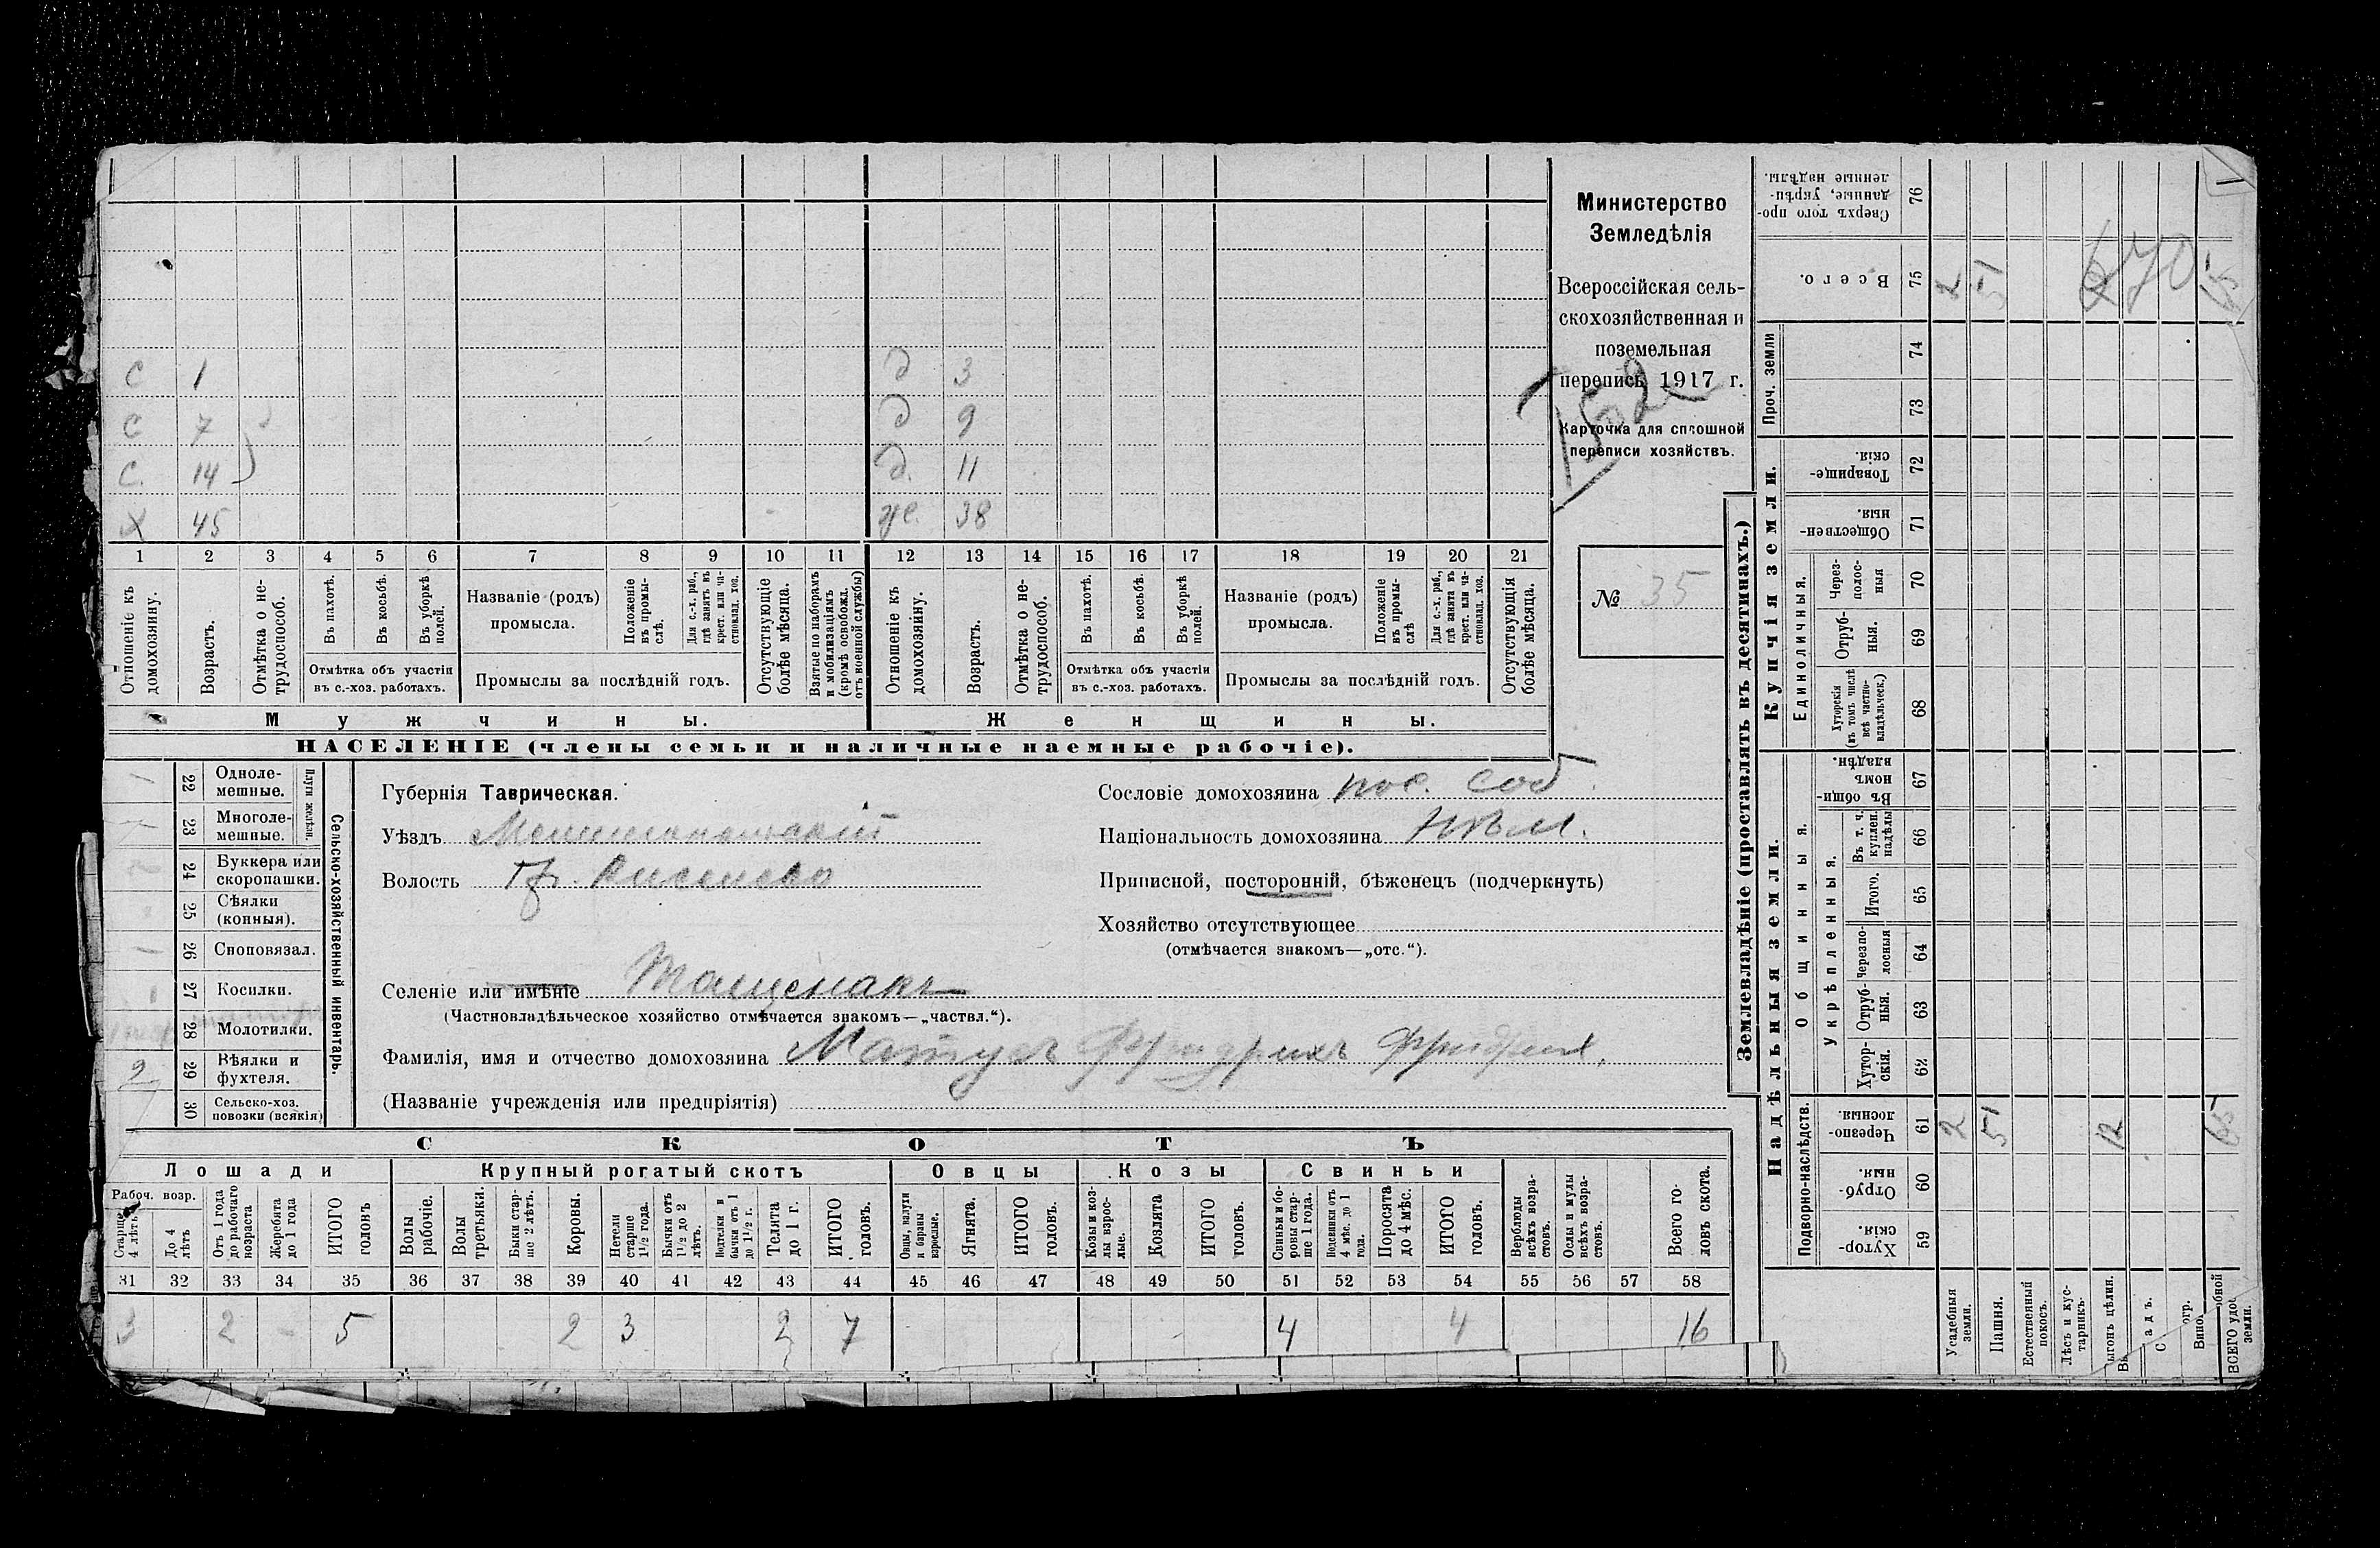 Министерство
Земледѣлія
Всероссійская сель-
скохозяйственная и
поземельная
перепись 1917 г.
Карточка для сплошной
переписи хозяйствъ.
№ 35
с 1 д 3
с 7 д 9
с. 14 д. 11
х 45 ж. 38
1 2 3 4 5 6 7 8 9 10 11 12 13 14 15 16 17 18 19 20 21
Отношеніе къ домохозяину.
Возрастъ.
Отмѣтка о не-трудоспособ.
Въ пахотѣ.
Въ косьбѣ.
Въ уборкѣ полей.
Отмѣтка объ участіи
въ с.-хоз. работахъ.
Названіе (родъ)
промысла.
Положеніе въ промы-слѣ.
Для с.-х. раб., гдѣ занятъ въ крест. или ча-стновлад. хоз.
Промыслы за послѣдній годъ.
Отсутствующіе болѣе мѣсяца.
Взятые по наборамъ и мобилизаціямъ (кромѣ освобожд. отъ военной службы)
Отношеніе къ домохозяину.
Возрастъ.
Отмѣтка о не-трудоспособ.
Въ пахотѣ.
Въ косьбѣ.
Въ уборкѣ полей.
Отмѣтка объ участіи
въ с.-хоз. работахъ.
Названіе (родъ)
промысла.
Положеніе въ промы-слѣ
Для с.-х. раб., гдѣ занята въ крест. или ча-стновлад. хоз.
Промыслы за послѣдній годъ.
Отсутствующія болѣе мѣсяца.
Мужчины. Женщины.
НАСЕЛЕНІЕ (члены семьи и наличные наемные рабочіе).
Сельско-хозяйственный инвентарь.
Плуги желѣзн.
22 Одноле-мешные.
23 Многоле-мешные.
24 Буккера или скоропашки.
25 Сѣялки (конныя).
26 Сноповязал.
27 Косилки.
28 Молотилки.
29 Вѣялки и фухтеля.
2
30 Сельско-хоз. повозки (всякія)
Губернія Таврическая.
Уѣздъ Мелитопольскій
Волость
Сословіе домохозяина пос. соб.
Національность домохозяина нѣм.
Приписной, посторонній, бѣженецъ (подчеркнуть)
Хозяйство отсутствующее
(отмѣчается знакомъ—„отс.“).
Селеніе или имѣніе Тащенакъ
(Частновладѣльческое хозяйство отмѣчается знакомъ—„частвл.“).
Фамилія, имя и отчество домохозяина Матусъ Фридрихъ Фридрих.
(Названіе учрежденія или предпріятія)
СКОТЪ
Лошади Крупный рогатый скотъ Овцы Козы Свиньи
Рабоч. возр.
Старше 4 лѣтъ
До 4 лѣтъ
Отъ 1 года до рабочаго возраста
Жеребята до 1 года
ИТОГО головъ
Волы рабочіе.
Волы третьяки.
Быки стар-ше 2 лѣтъ.
Коровы.
Нетели старше 1 1/2 года.
Бычки отъ 1 1/2 до 2 лѣтъ.
Подтелки и бычки отъ 1 до 1 1/2 г.
Телята до 1 г.
ИТОГО головъ.
Овцы, валухи и бараны взрослые.
Ягнята.
ИТОГО головъ.
Козы и коз-лы взрос-лые.
Козлята
ИТОГО головъ.
Свиньи и бо-ровы стар-ше 1 года.
Подсвинки отъ 4 мѣс. до 1 года.
Поросята до 4 мѣс.
ИТОГО головъ.
Верблюды всѣхъ возра-стовъ.
Ослы и мулы всѣхъ возра-стовъ.
Всего го-ловъ скота.
31 32 33 34 35 36 37 38 39 40 41 42 43 44 45 46 47 48 49 50 51 52 53 54 55 56 57 58
3 2 - 5 2 3 2 7 4 4 16
Землевладѣніе (проставлять въ десятинахъ.)
Надѣльныя земли. Купчія земли.
Проч. земли
Сверхъ того про-данные, укрѣп-ленные надѣлы. 76
Всего. 75 2 51 65
670
74
73
Товарище-скія. 72
Обществен-ныя. 71
Единоличныя.
Через-полос-ныя 70
Отруб-ныя. 69
Хуторскія (въ томъ числѣ всѣ частно-владѣльческ.) 68
Общинныя.
Въ общин-номъ владѣн. 67
Укрѣпленныя.
Въ т. ч. куплен. надѣлы 66
Итого. 65
Черезпо-лосныя 64
Отруб-ныя. 63
Хутор-скія. 62
Подворно-наслѣдств.
Черезпо-лосныя 61 2 51 12 65
Отруб-ныя. 60
Хутор-скія. 59
Усадебныя земли.
Пашня.
Естественный покосъ.
Лѣсъ и кус-тарникъ.
Выгонъ цѣлин.
Садъ.
ВСЕГО удо
земли.